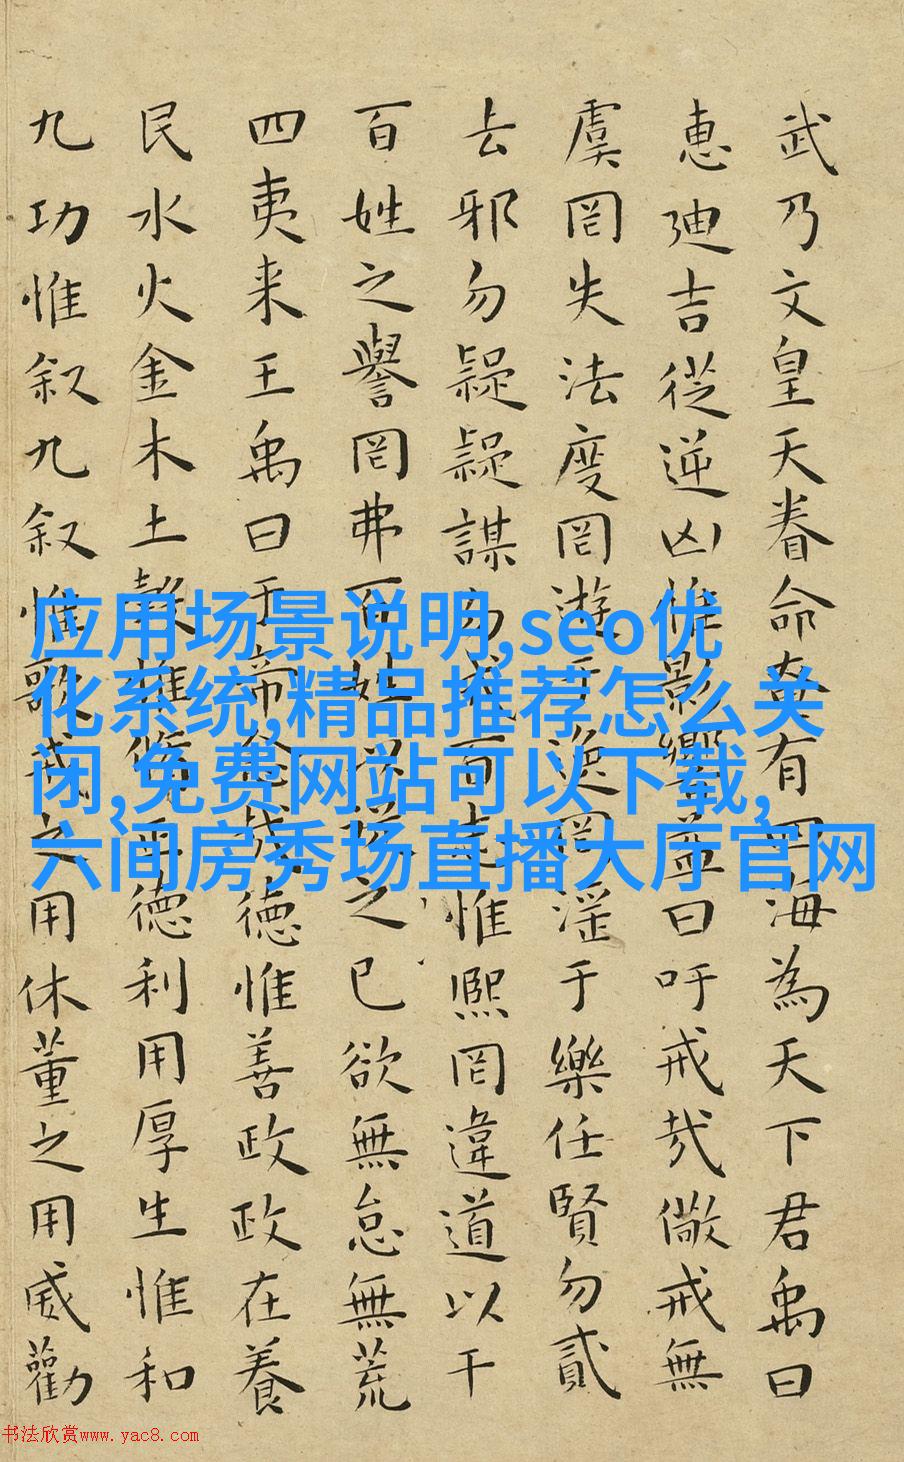 武乃文皇天眷命奄有四海為天下君禹曰
惠廸吉從逆凶惟影響益曰吁戒㢤儆戒無
虞罔失法度罔遊于逸罔淫于樂任賢勿貳
去邪勿疑疑謀勿成百志惟熙罔違道以干
百姓之譽罔弗百姓以從之已欲無怠無荒
四夷来王禹曰于帝念哉德惟善政政在養
民水火金木土穀惟脩正德利用厚生惟和
九功惟叙九叙惟歌戒之用休董之用威勸
应用场景说明,seo优
化系统,精品推荐怎么关
闭,免费网站可以下载,
六间房秀场直播大厅官网
书法欣赏www.yac8.com